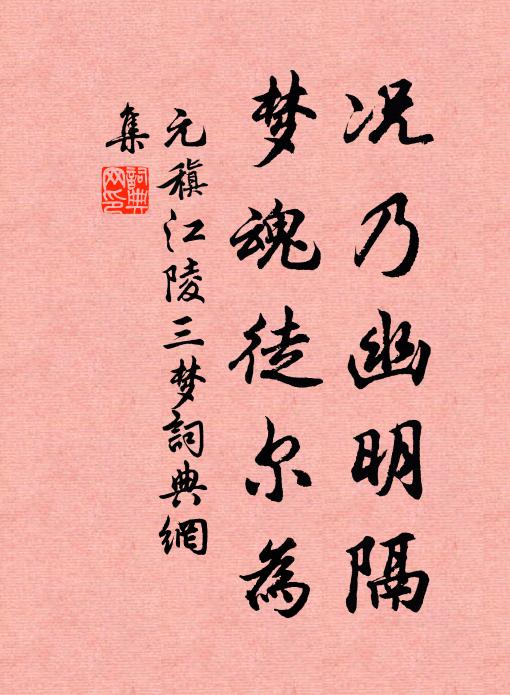 况乃幽明隔
梦魂徒尔為
元稹江陵三梦詞典網
集
詞典网印